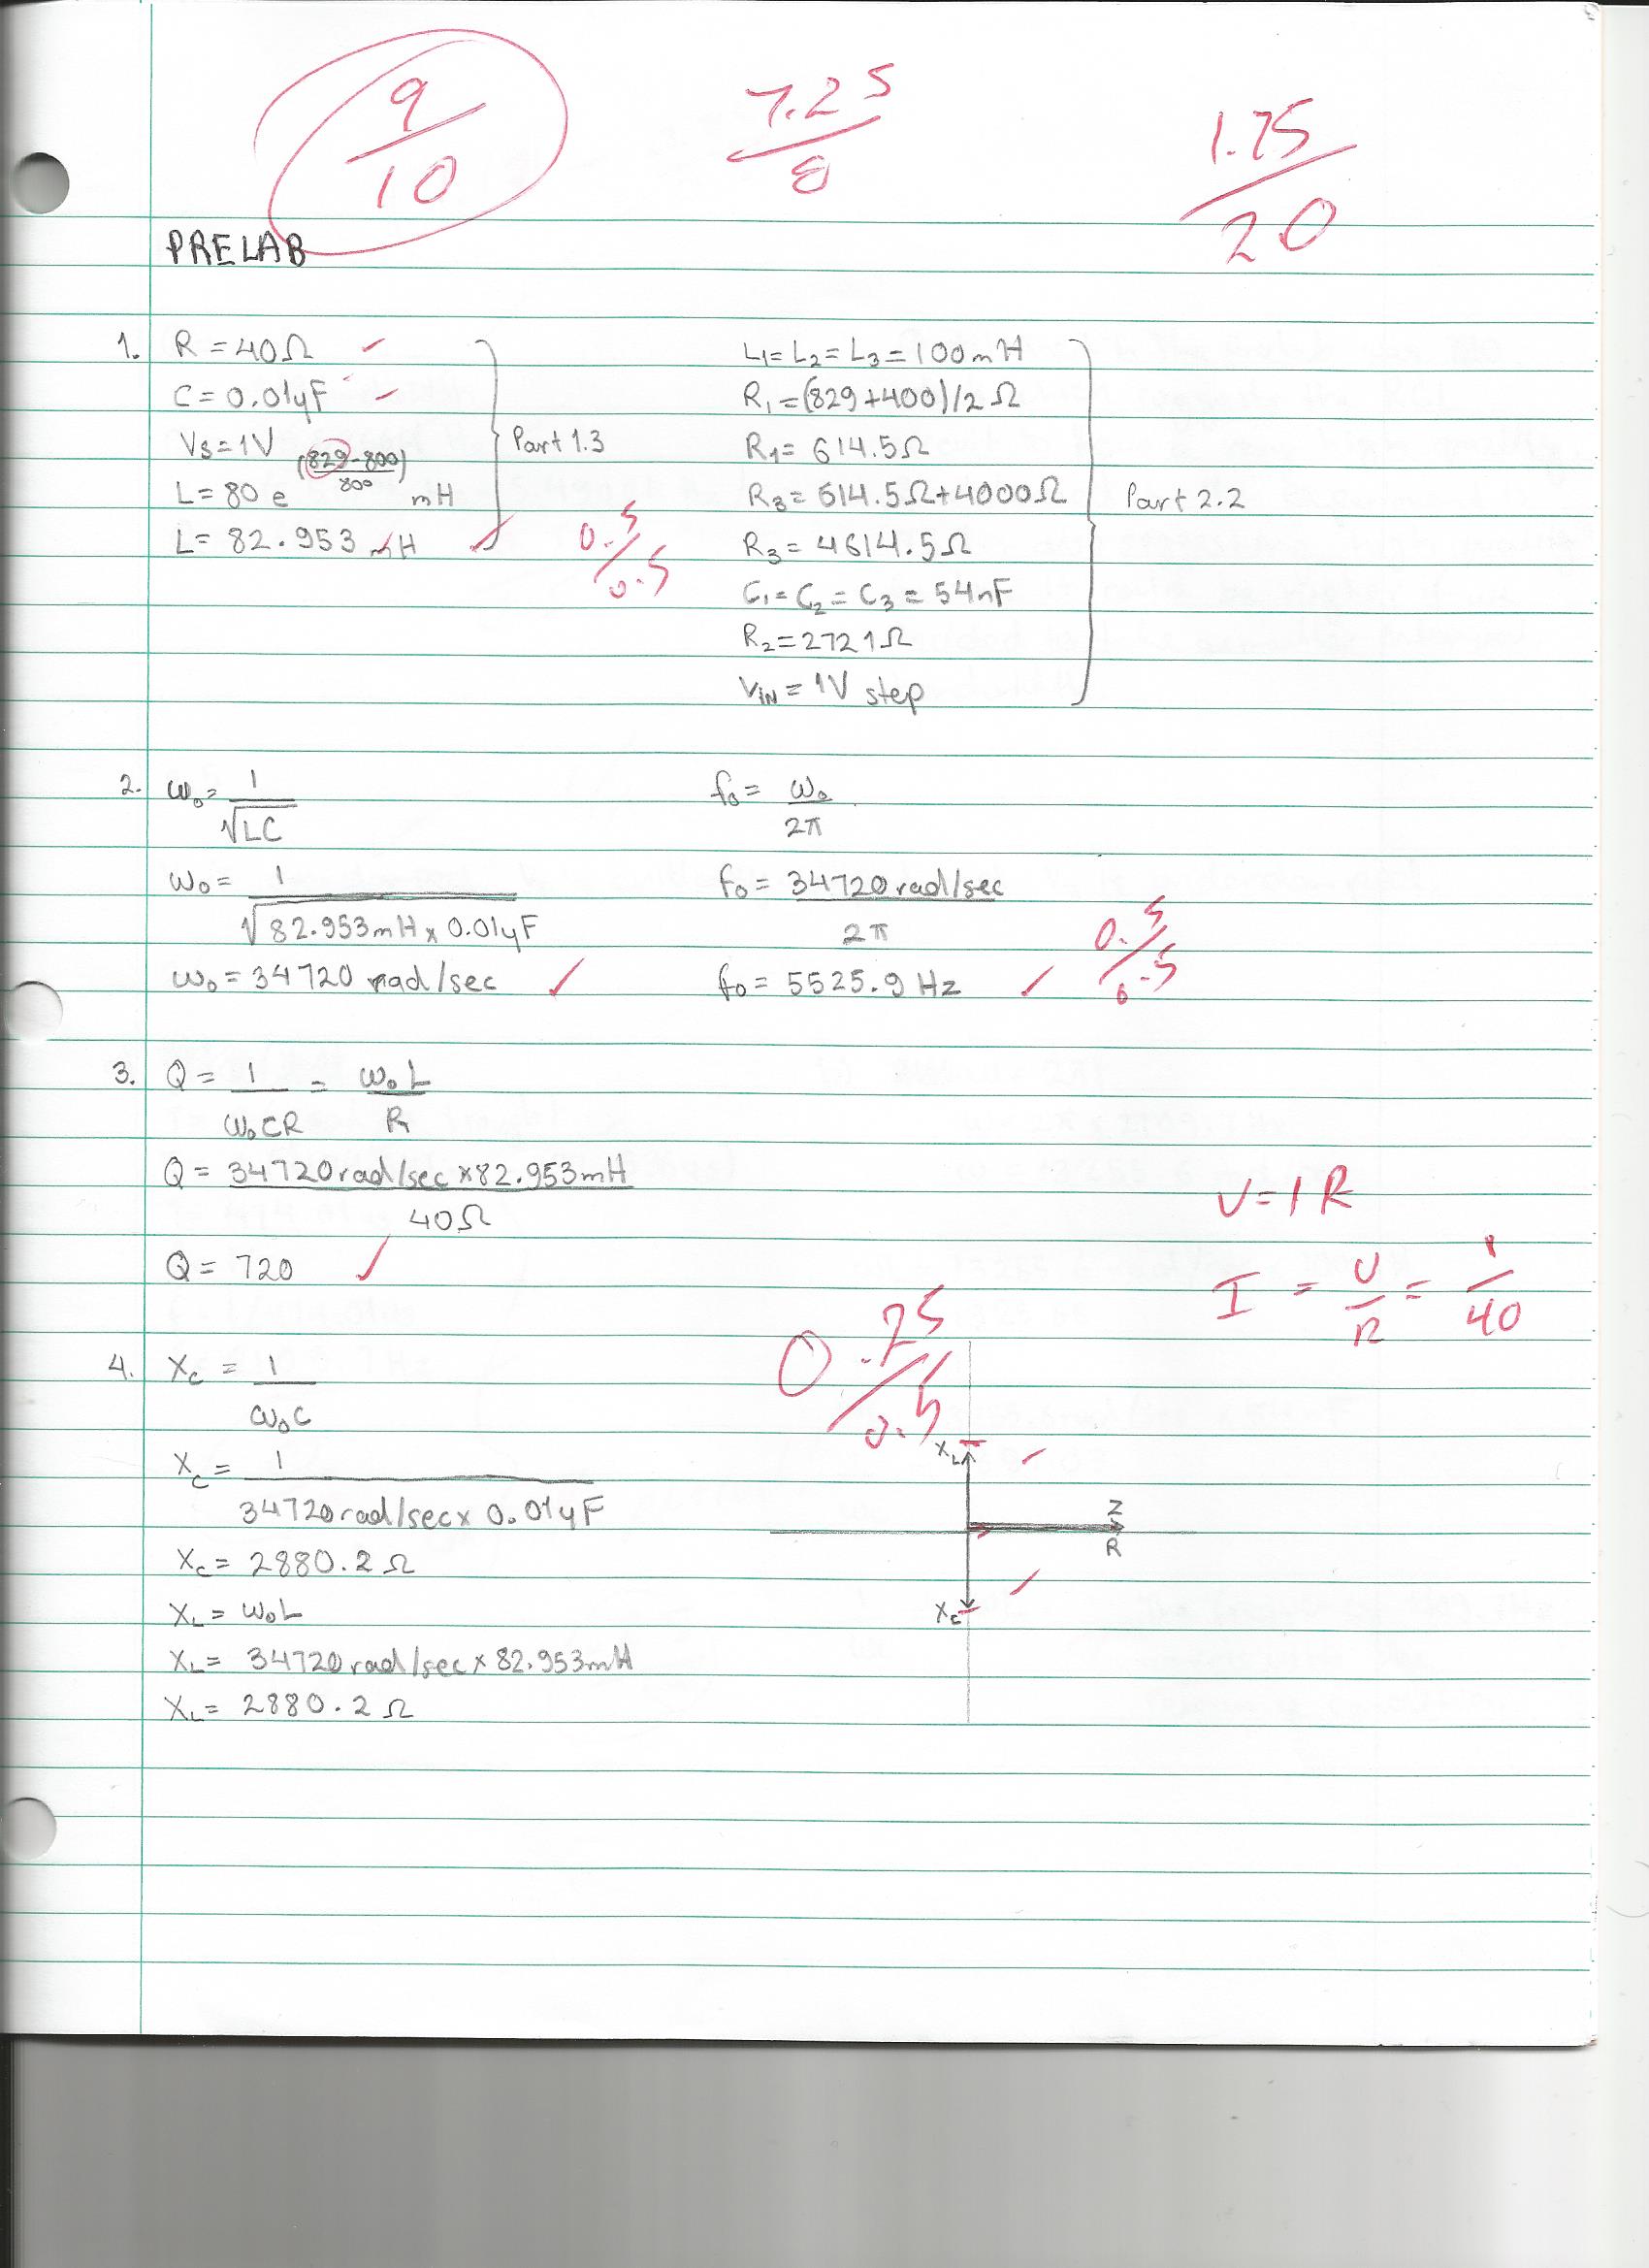 9/10
7.25/8
1.75/20
PRELAB
1. R = 40Ω
C = 0.01μF
Vs = 1V
L = 80 e^((829-800)/800) mH
L = 82.953 mH
Part 1.3
0.5/0.5
L1 = L2 = L3 = 100mH
R1 = (829+400)/2 Ω
R1 = 614.5Ω
R3 = 614.5Ω+4000Ω
R3 = 4614.5Ω
C1 = C2 = C3 = 54nF
R2 = 2721Ω
VIN = 1V step
Part 2.2
2. ω0 = 1/√LC
ω0 = 1/√82.953mH x 0.01μF
ω0 = 34720 rad/sec
f0 = ω0/2π
f0 = 34720rad/sec/2π
f0 = 5525.9 Hz
0.5/0.5
3. Q = 1/ω0CR = ω0L/R
Q = 34720rad/sec x 82.953mH/40Ω
Q = 720
V = IR
I = V/R = 1/40
4. Xc = 1/ω0C
Xc = 1/34720rad/sec x 0.01μF
Xc = 2880.2 Ω
XL = ω0L
XL = 34720rad/sec x 82.953mH
XL = 2880.2 Ω
0.25/0.5
XL
Z
R
Xc